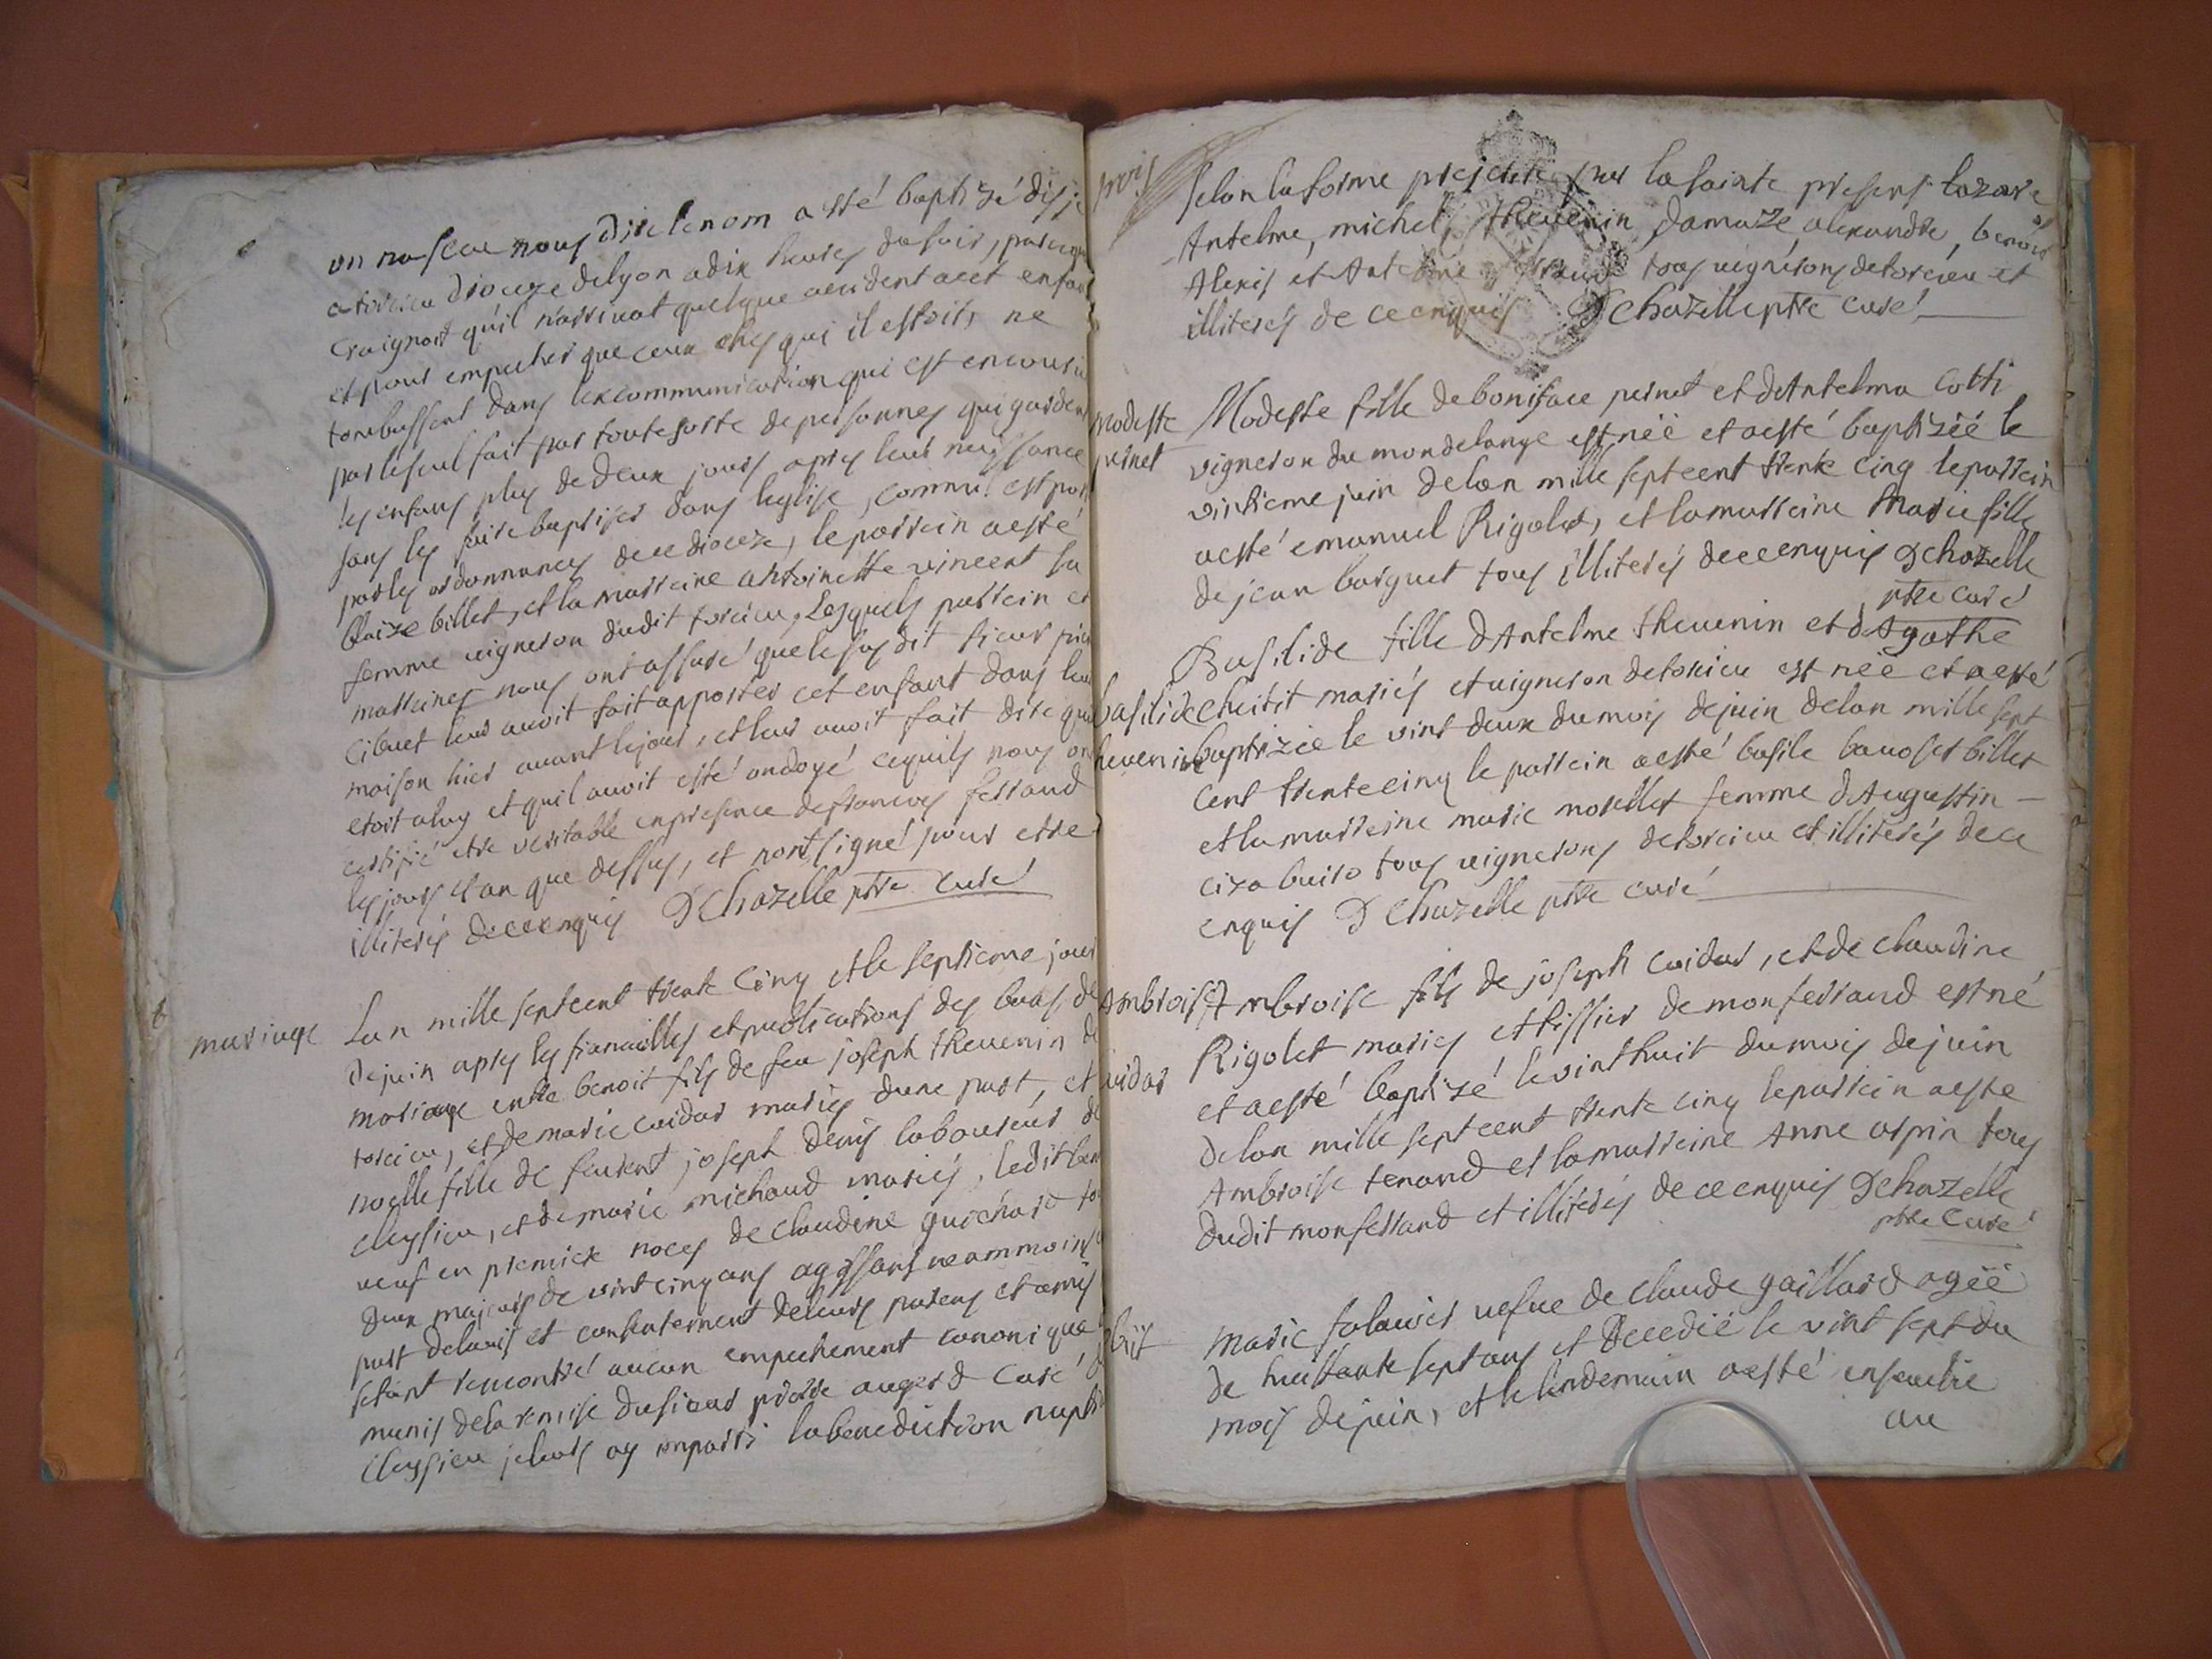 on na sceu nous dire le nom a esté baptizé dis je
a torcieu dioceze de lyon a dix heures du soir, parcequ
craignoit qu'il n'arrivat quelque accident a cet enfan
et pour empecher que ceux ches qui il estoit, ne
tombassent dans lexcommunication qui est encourue
par le seul fait par toute sorte de personnes qui garden
les enfans plus de deux jours apres leur naissance
sans les faire baptiser dans leglise, comm'il est por
par les ordonnances de ce dioceze, le parrein a esté
blaize billet, et la marreine antoinette vincent sa
femme vigneron dudit torcieu, Lesquels parrein et
marreines nous ont assuré que le sus dit sieur
Cibuet leur auoit fait apporter cet enfant dans leur
maison hier auant le jour, et leur auoit fait dire qu
etoit a luy et qu'il auoit esté ondoyé cequils nous on
certifié etre veritable en presence de francois ferrand
les jours et an que dessus, et n'ont signé pour etre
illiterés de ce enquis D Chazelle ptre curé
mariage
Lan mille septcent trente Cinq et le septieme jour
de juin apres les fiancailles et publications des bans de
mariage entre benoit fils de feu joseph thevenin de
torcieu, et de marie cuidar mariés dune part, et
noelle fille de feurent joseph denis laboureur de
cleysieu, et de marie michaud mariés, ledit ben
veuf en premiere noces de claudine guichard to
deux majeurs de vint cinq ans agissans neammoins
part de lavis et consentement de leurs parens et amis
setant rencontré aucun empechement canonique
munis de la remise du sieur pierre augerd Curé d
cleysieu je leurs ay imparti la benediction nupti
selon la forme prescrite par la sainte presens lazare
Antelme, michel, thevenin, damaze, alexandre, benoit
Alexis et Antelme tous vignerons de torcieu et
illiterés de ce enquis D chazelle ptre curé
modeste
pernet
Modeste fille de boniface pernet et d'Antelma Cotti
vigneron du mondelange est néë et a esté baptizéë le
vintieme juin de lan mille septcent trente cinq le parrein
a esté emanuel Rigolet, et la marreine Marie fille
de jean barquet tous illiterés de ce enquis D chazelle
ptre curé
basilide
thevenin
Basilide fille d'Antelme thevenin et d'Agathe
cheitit mariés et vigneron de torcieu est néë et a esté
baptizéë le vint deux du mois de juin de lan mille sept
cent trente cinq le parrein a esté basile billet
et la marreine marie morellet femme d'Augustin
tous vignerons de torcieu et illiterés de ce
enquis D Chazelle ptre curé
Ambroise
cuidar
Ambroise fils de joseph cuidar, et de claudine
Rigolet mariés et tissier de monferrand est né
et a esté baptizé le vint huit du mois de juin
de lan mille septcent trente cinq le parrein a esté
Ambroise tenand et la marreine Anne arpin tous
dudit monferrand et illiterés de ce enquis D chazelle
ptre Curé
obiit
marie falavier vefue de claude gaillard agéë
de huittante sept ans et decedéë le vint sept du
mois de juin, et le lendemain a esté enseuelie
au